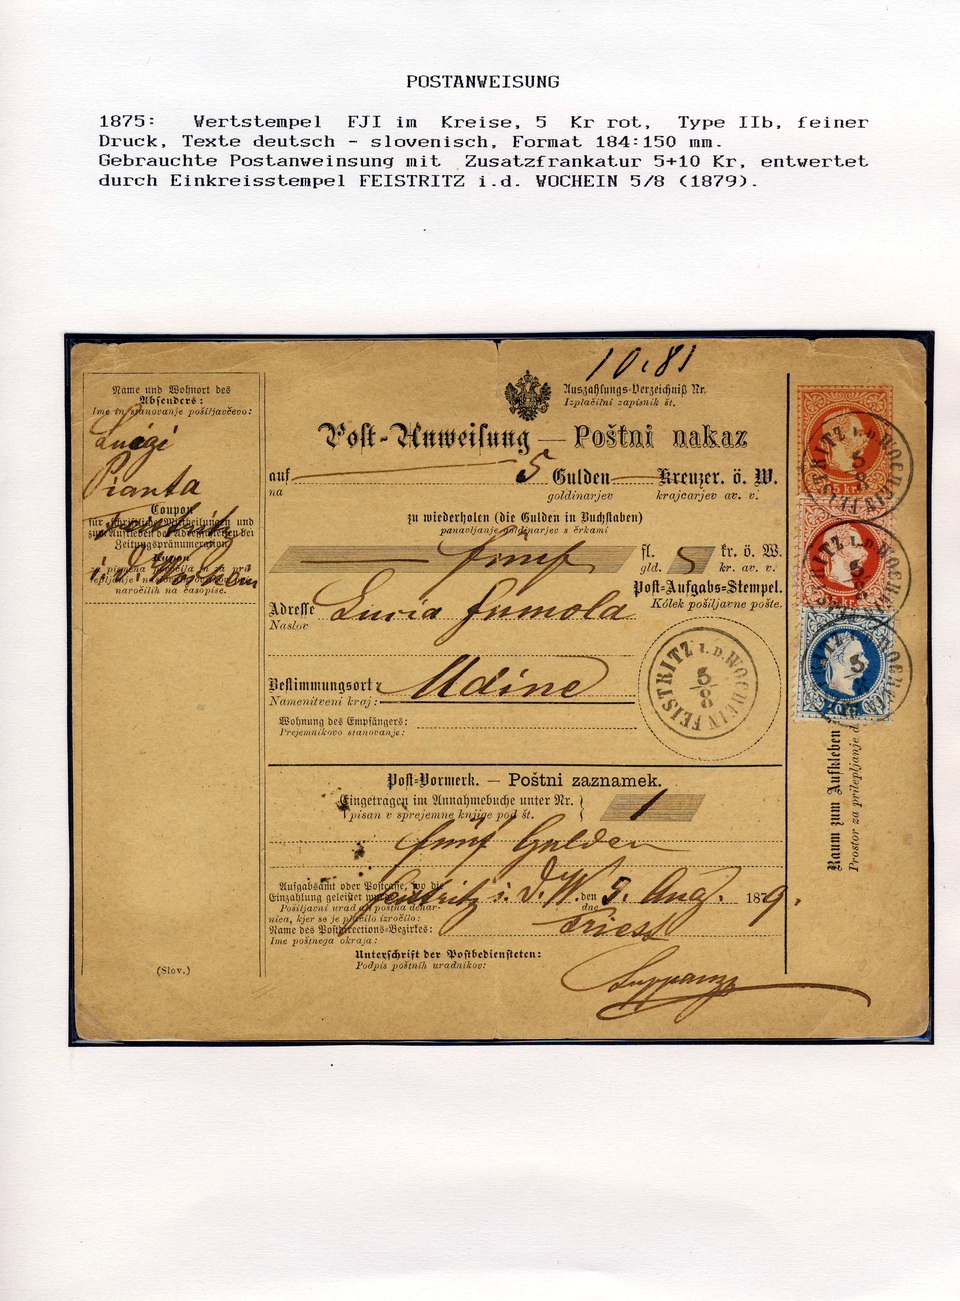 POSTANWEISUNG
1875: Wertstempel FJI im Kreise, 5 Kr rot, Type IIb, feiner
Druck, Texte deutsch - slovenisch, Format 184:150 mm.
Gebrauchte Postanweinsung mit Zusatzfrankatur 5+10 Kr, entwertet
durch Einkreisstempel FEISTRITZ i.d. WOCHEIN 5/8 (1879).
10,81
Name und Wohnort des
Absenders:
Ime in stanovanje pošiljavčevo:
Luigi
Pianta
Feistritz
Coupon
für schriftliche Mittheilungen und
zum Aufkleben der Adreßschleifen bei
Zeitungspränumeration
Kupon
naročilih na časopise.
(Slov.)
Auszahlungs-Verzeichniß Nr.
Izplačilni zapisnik št.
Post-Anweisung — Poštni nakaz
auf 5 Gulden Kreuzer. ö. W.
na goldinarjev krajcarjev av. v.
zu wiederholen (die Gulden in Buchstaben)
panavljanje goldinarjev s črkami
fünf fl. 5 kr. ö. W.
gld. kr. av. v.
Post-Aufgabs-Stempel.
Kólek pošiljavne pošte.
Adresse
Naslov
Bestimmungsort: Udine
Namenitveni kraj:
Wohnung des Empfängers:
Prejemnikovo stanovanje:
FEISTRITZ I. D. WOCHEIN
5/8
Post-Vormerk. — Poštni zaznamek.
Eingetragen im Annahmebuche unter Nr. 1
vpisan v sprejemne knjige pod št.
fünf Gulden
Aufgabsamt oder Postcasse, wo die
Einzahlung geleistet wurde Feistritz i. d. W. den 5. Aug. 1879.
Pošiljavni urad ali poštna denar- dne
nica, kjer se je plačilo izročilo:
Name des Postdirections-Bezirkes: Triest
Ime poštnega okraja:
Unterschrift der Postbediensteten:
Podpis poštnih uradnikov:
FEISTRITZ I. D. WOCHEIN
5
8
FEISTRITZ I. D. WOCHEIN
5
8
FEISTRITZ I. D. WOCHEIN
5
8
Raum zum Aufkleben
Prostor za prilepljanje